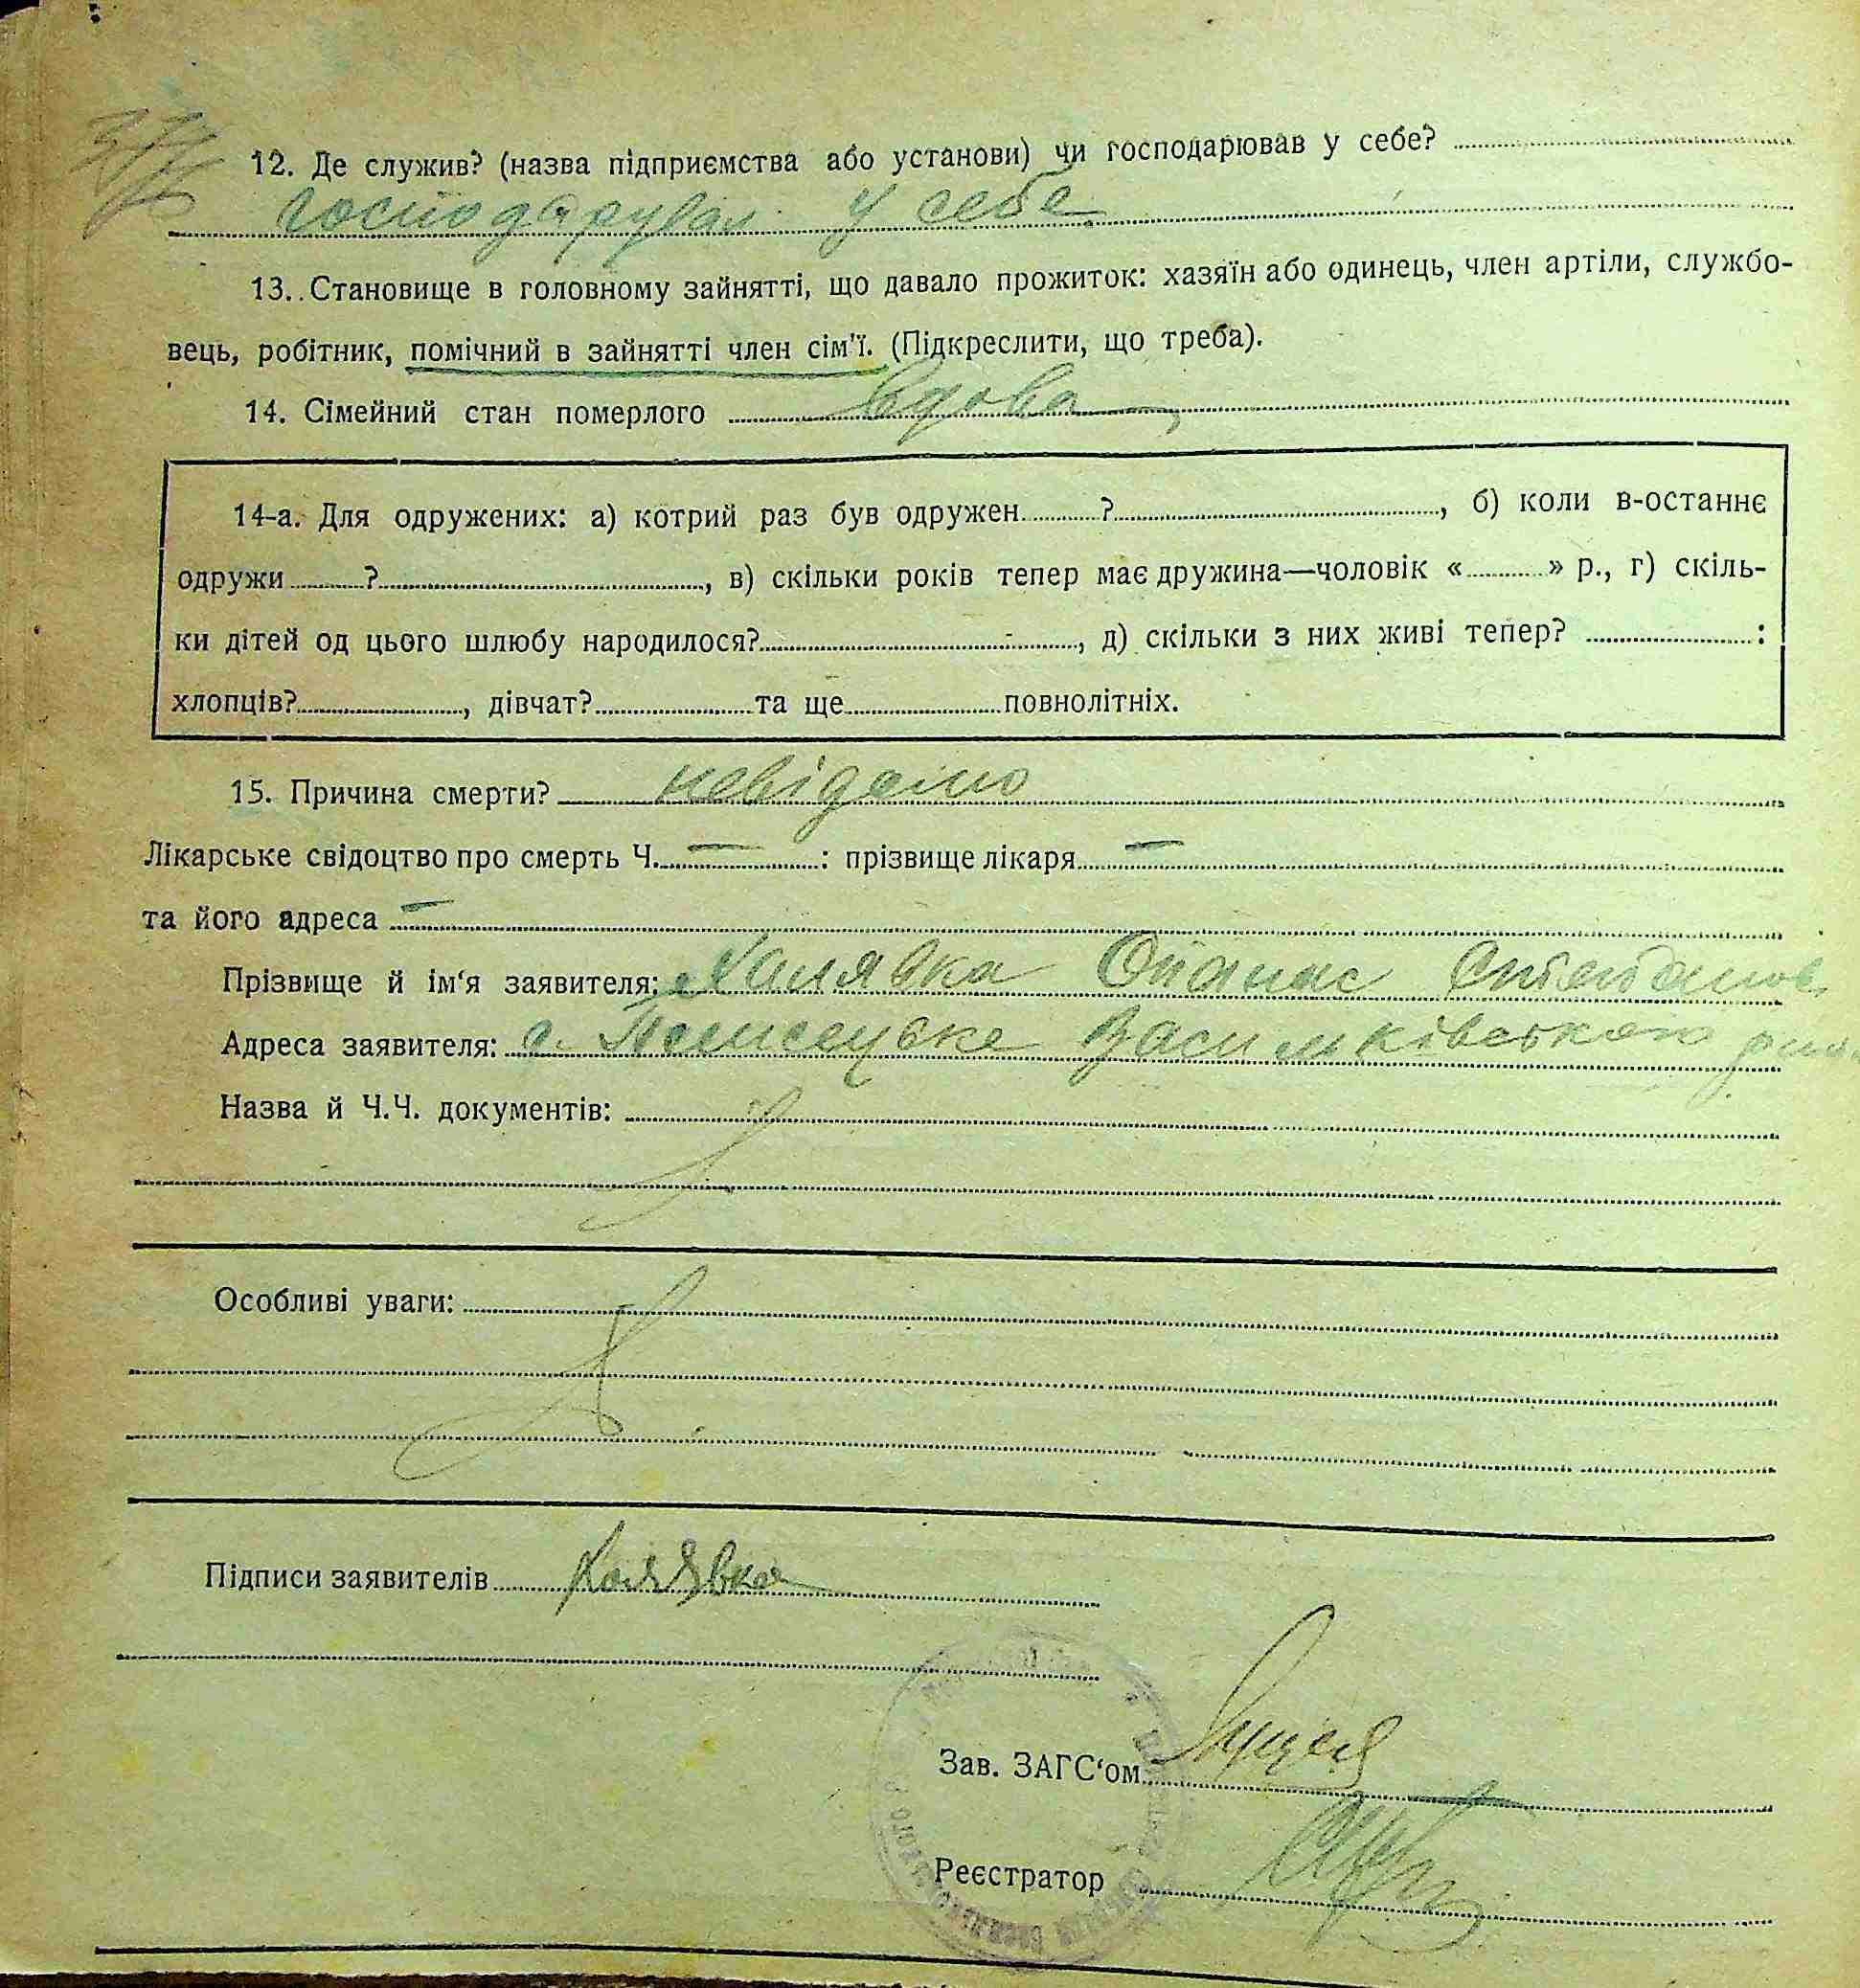 12. Де служив? (назва підприємства або установи) чи господарював у себе?
господарував у себе
13. Становище в головному зайнятті, що давало прожиток: хазяїн або одинець, член артіли, службо-
вець, робітник, помічний в зайнятті член сім'ї. (Підкреслити, що треба).
14. Сімейний стан померлого вдова
14-а. Для одружених: а) котрий раз був одружен ? , б) коли в-останнє
одружи ? , в) скільки років тепер має дружина—чоловік « » р., г) скіль-
ки дітей од цього шлюбу народилося? , д) скільки з них живі тепер? :
хлопців? , дівчат? та ще повнолітніх.
15. Причина смерти? невідомо
Лікарське свідоцтво про смерть Ч. — : прізвище лікаря —
та його адреса —
Прізвище й ім'я заявителя: Халявка Опанас
Адреса заявителя: с. Васильківського
Назва й Ч.Ч. документів:
Особливі уваги:
Підписи заявителів Халявка
Зав. ЗАГС'ом
Реєстратор